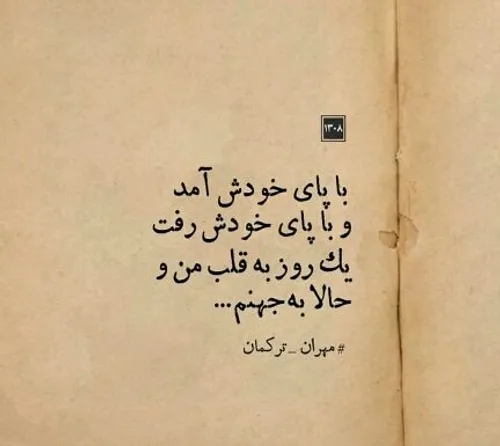 ۱۳۰۸
با پای خودش آمد
و با پای خودش رفت
یك روز به قلب من و
حالا به جهنم...
#مهران_ترکمان